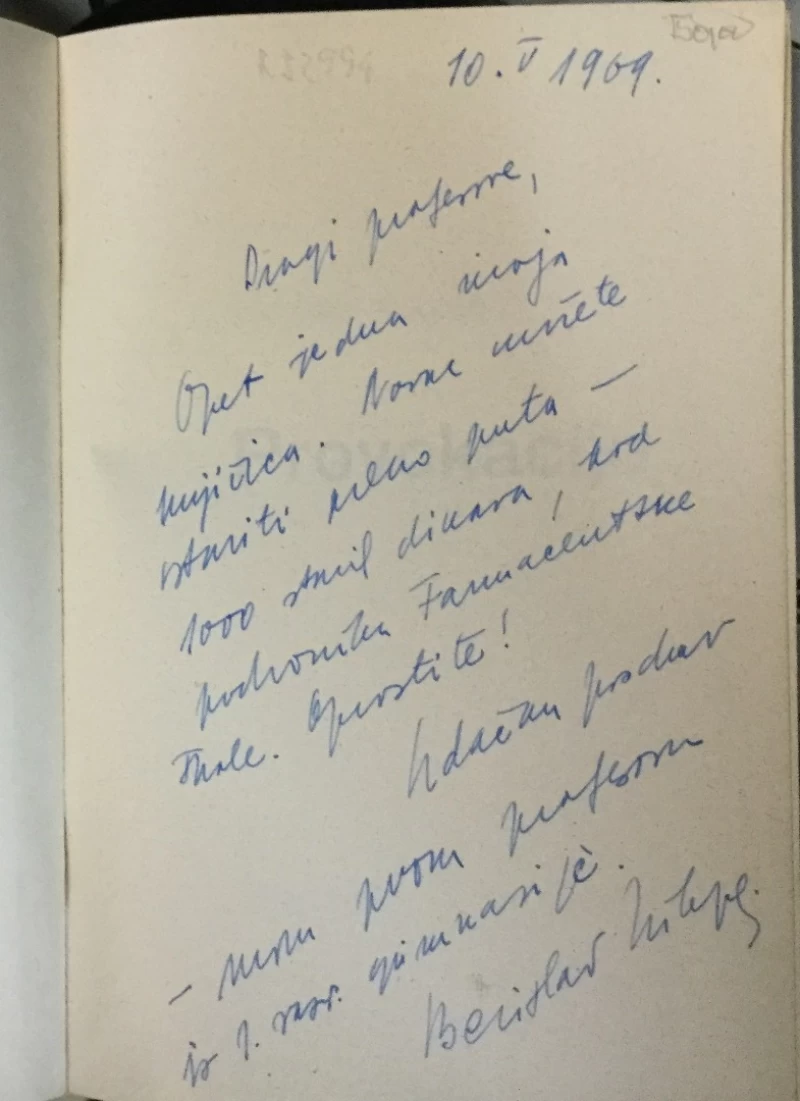 10. V 1969.
Dragi profesore,
Opet jedna moja
knjižica. Novac možete
ostaviti nekog puta —
1000 stari dinara, kod
podvornika Farmaceutske
škole. Oprostite!
Udačan pozdrav
— mom prvom profesoru
iz I. razr. gimnazije.
Berislav